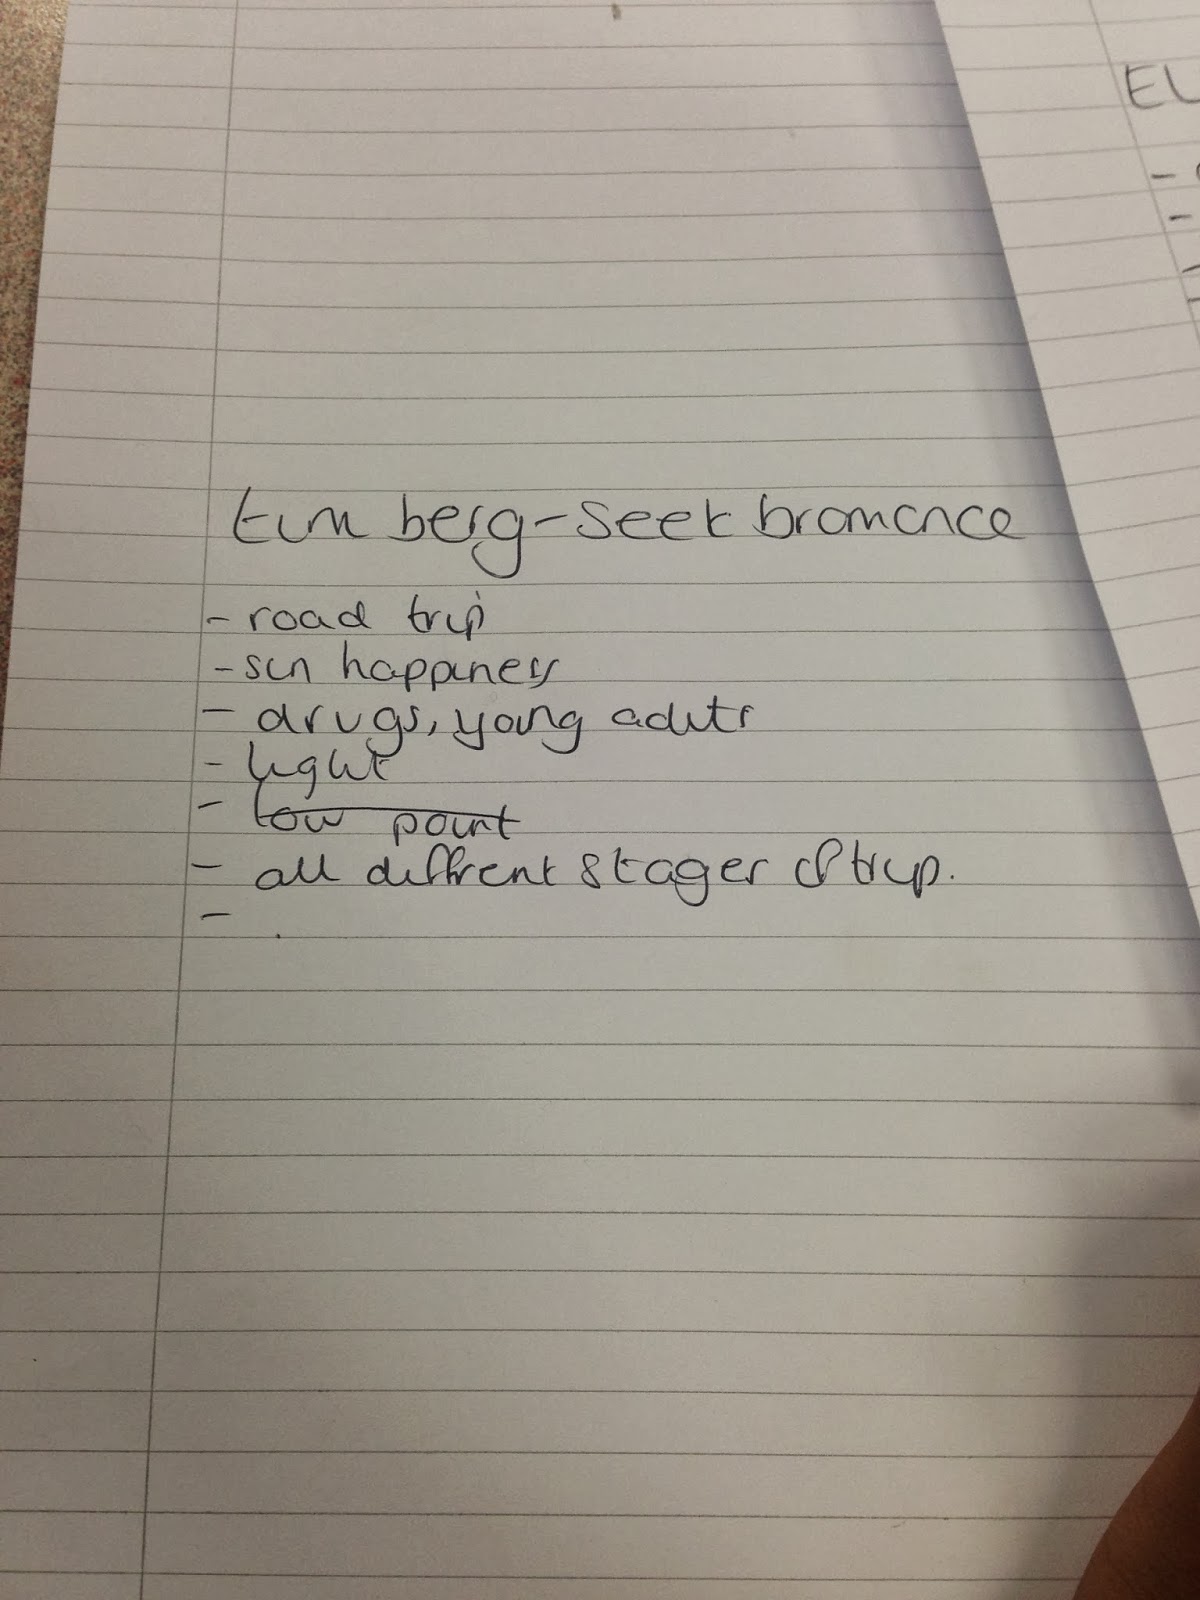 tim berg-seek bromance
- road trip
- sun happiness
- drugs, young adults
- light
- low point
- all diffrent stages of trip.
-
EL
-
-